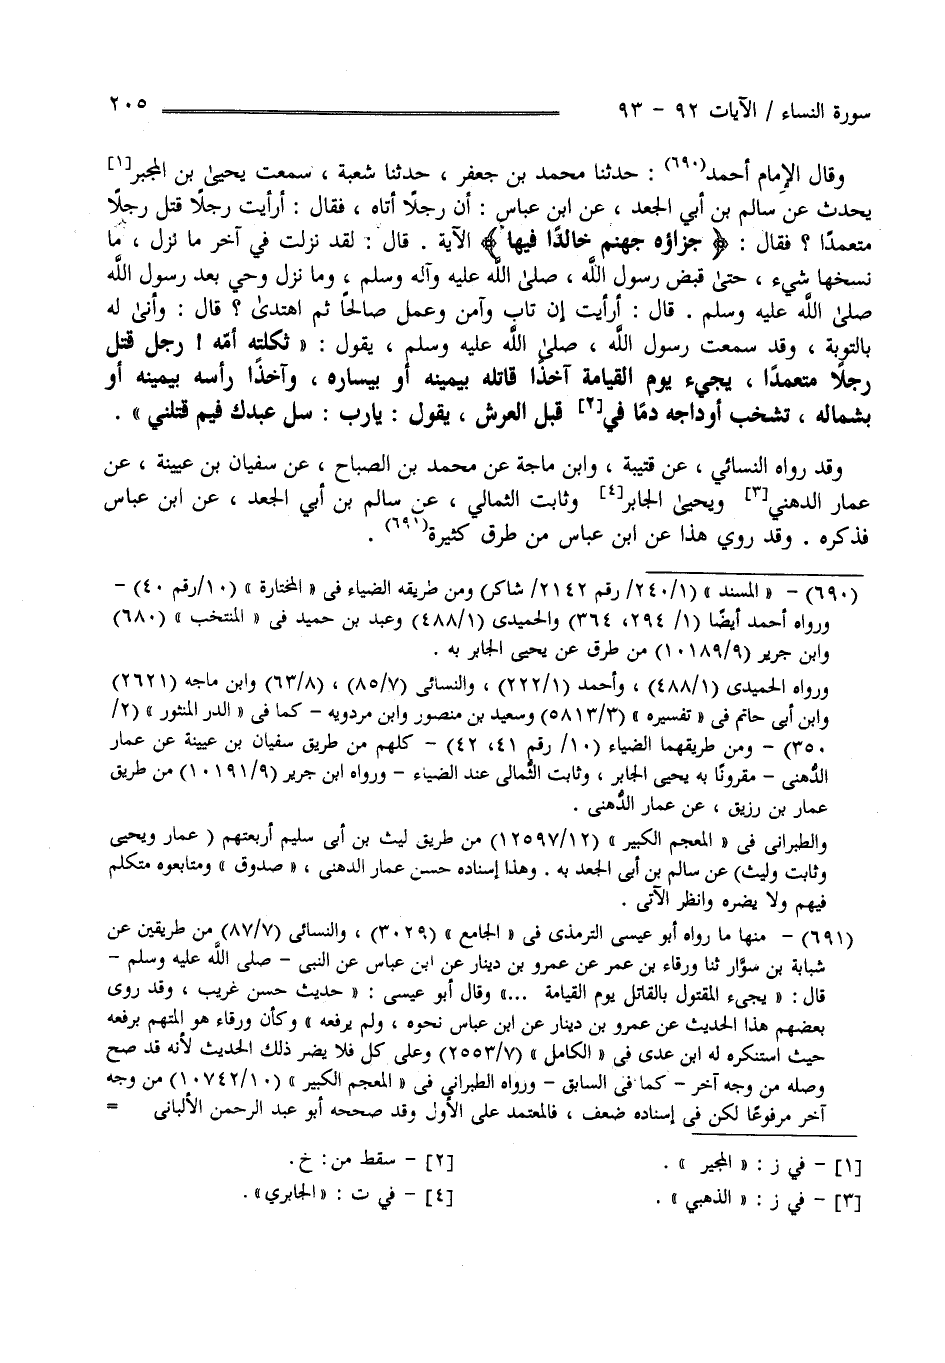 سورة النساء / الآيات ٩٢ - ٩٣
٢٠٥
وقال الإمام أحمد(٦٩٠) : حدثنا محمد بن جعفر ، حدثنا شعبة ، سمعت يحيىٰ بن المجبر[١]
يحدث عن سالم بن أبي الجعد ، عن ابن عباس : أن رجلًا أتاه ، فقال : أرأيت رجلًا قتل رجلًا
متعمدًا ؟ فقال : ﴿ جزاؤه جهنم خالدًا فيها ﴾ الآية . قال : لقد نزلت في آخر ما نزل ، ما
نسخها شيء ، حتىٰ قبض رسول اللَّه ، صلىٰ اللَّه عليه وآله وسلم ، وما نزل وحي بعد رسول اللَّه
صلىٰ اللَّه عليه وسلم . قال : أرأيت إن تاب وآمن وعمل صالحًا ثم اهتدىٰ ؟ قال : وأنىٰ له
بالتوبة ، وقد سمعت رسول اللَّه ، صلىٰ اللَّه عليه وسلم ، يقول : « ثكلته أمّه ! رجل قتل
رجلًا متعمدًا ، يجيء يوم القيامة آخذًا قاتله بيمينه أو بيساره ، وآخذًا رأسه بيمينه أو
بشماله ، تشخب أوداجه دمًا في[٢] قبل العرش ، يقول : يارب : سل عبدك فيم قتلني » .
وقد رواه النسائي ، عن قتيبة ، وابن ماجة عن محمد بن الصباح ، عن سفيان بن عيينة ، عن
عمار الدهني[٣] ويحيىٰ الجابر[٤] وثابت الثمالي ، عن سالم بن أبي الجعد ، عن ابن عباس
فذكره . وقد روي هذا عن ابن عباس من طرق كثيرة(٦٩١) .
(٦٩٠) - « المسند » (٢٤٠/١/ رقم ٢١٤٢/ شاكر) ومن طريقه الضياء فى « المختارة » (١٠/رقم ٤٠) -
ورواه أحمد أيضًا (١/ ٢٩٤، ٣٦٤) والحميدى (٤٨٨/١) وعبد بن حميد فى « المنتخب » (٦٨٠)
وابن جرير (١٠١٨٩/٩) من طرق عن يحيى الجابر به .
ورواه الحميدى (٤٨٨/١) ، وأحمد (٢٢٢/١) ، والنسائى (٨٥/٧) ، (٦٣/٨) وابن ماجه (٢٦٢١)
وابن أبى حاتم فى « تفسيره » (٥٨١٣/٣) وسعيد بن منصور وابن مردويه - كما فى « الدر المنثور » (٢/
٣٥٠) - ومن طريقهما الضياء (١٠/ رقم ٤١، ٤٢) - كلهم من طريق سفيان بن عيينة عن عمار
الدُّهنى - مقرونًا به يحيى الجابر ، وثابت الثُّمالى عند الضياء - ورواه ابن جرير (١٠١٩١/٩) من طريق
عمار بن رزيق ، عن عمار الدُّهنى .
والطبرانى فى « المعجم الكبير » (١٢٥٩٧/١٢) من طريق ليث بن أبى سليم أربعتهم ( عمار ويحيى
وثابت وليث) عن سالم بن أبى الجعد به . وهذا إسناده حسن عمار الدهنى ، « صدوق » ومتابعوه متكلم
فيهم ولا يضره وانظر الآتى .
(٦٩١) - منها ما رواه أبو عيسى الترمذى فى « الجامع » (٣٠٢٩) ، والنسائى (٨٧/٧) من طريقين عن
شبابة بن سوَّار ثنا ورقاء بن عمر عن عمرو بن دينار عن ابن عباس عن النبى - صلى اللَّه عليه وسلم -
قال : « يجىء المقتول بالقاتل يوم القيامة ...» وقال أبو عيسى : « حديث حسن غريب ، وقد روى
بعضهم هذا الحديث عن عمرو بن دينار عن ابن عباس نحوه ، ولم يرفعه » وكأن ورقاء هو المتهم برفعه
حيث استنكره له ابن عدى فى « الكامل » (٢٥٥٣/٧) وعلى كل فلا يضر ذلك الحديث لأنه قد صح
وصله من وجه آخر - كما فى السابق - ورواه الطبرانى فى « المعجم الكبير » (١٠٧٤٢/١٠) من وجه
آخر مرفوعًا لكن فى إسناده ضعف ، فالمعتمد على الأول وقد صححه أبو عبد الرحمن الألبانى =
[١] - في ز : « المجير » .
[٢] - سقط من: خ.
[٣] - في ز : « الذهبي » .
[٤] - في ت : «الجابري» .